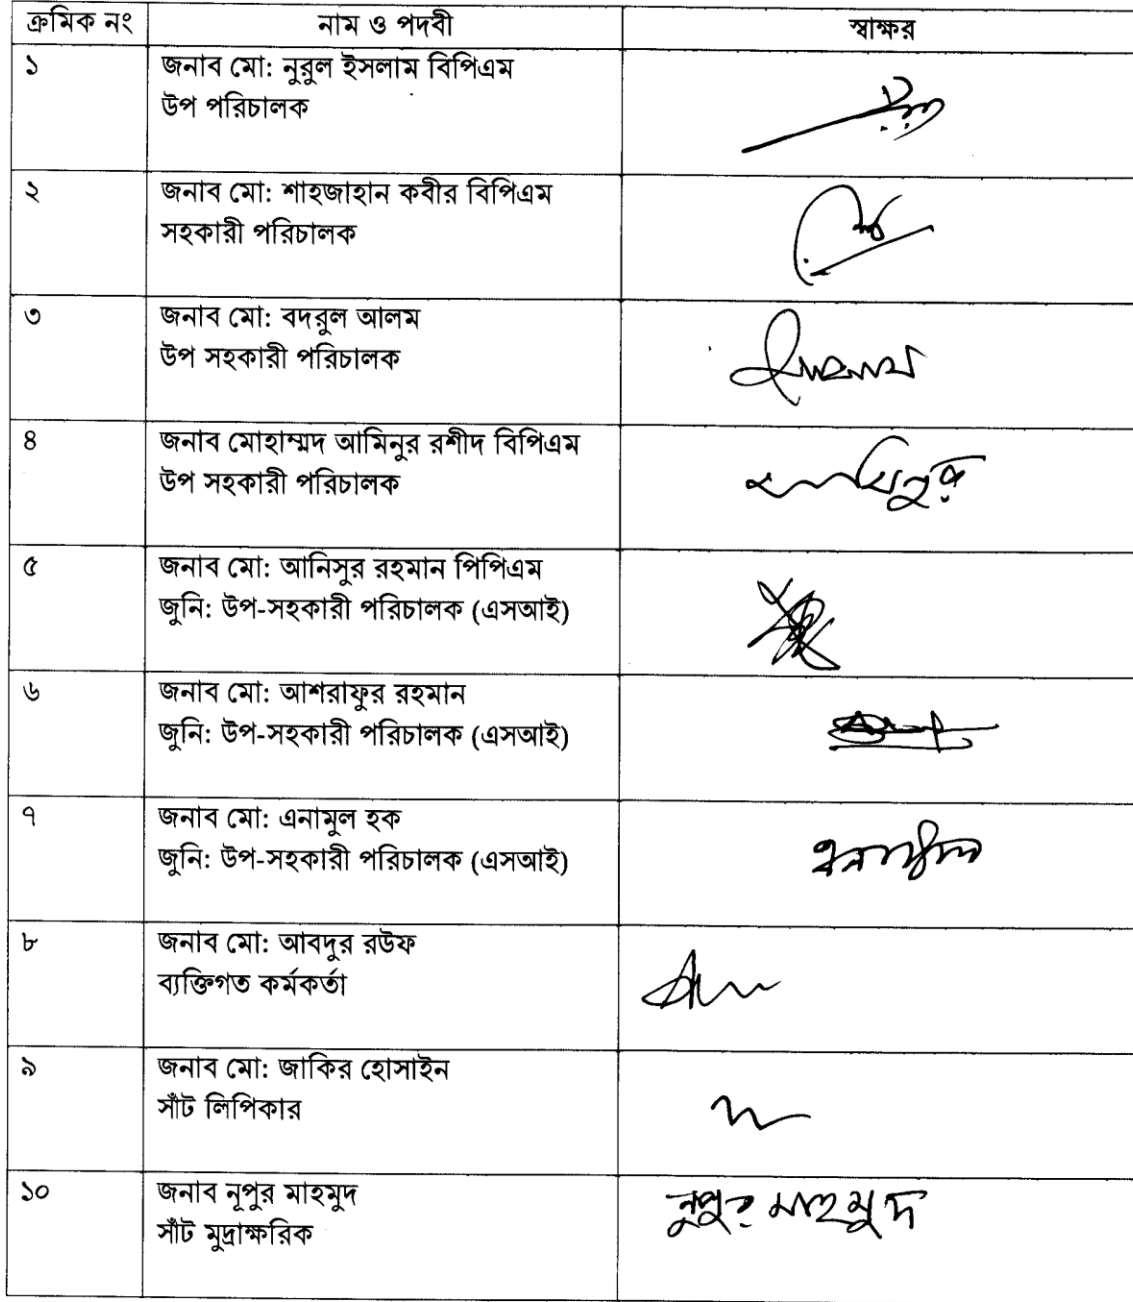 ক্রমিক নং নাম ও পদবী স্বাক্ষর
১ জনাব মো: নুরুল ইসলাম বিপিএম
উপ পরিচালক
২ জনাব মো: শাহজাহান কবীর বিপিএম
সহকারী পরিচালক
৩ জনাব মো: বদরুল আলম
উপ সহকারী পরিচালক
৪ জনাব মোহাম্মদ আমিনুর রশীদ বিপিএম
উপ সহকারী পরিচালক
৫ জনাব মো: আনিসুর রহমান পিপিএম
জুনি: উপ-সহকারী পরিচালক (এসআই)
৬ জনাব মো: আশরাফুর রহমান
জুনি: উপ-সহকারী পরিচালক (এসআই)
৭ জনাব মো: এনামুল হক
জুনি: উপ-সহকারী পরিচালক (এসআই)
৮ জনাব মো: আবদুর রউফ
ব্যক্তিগত কর্মকর্তা
৯ জনাব মো: জাকির হোসাইন
সাঁট লিপিকার
১০ জনাব নূপুর মাহমুদ নুপুর মাহমুদ
সাঁট মুদ্রাক্ষরিক